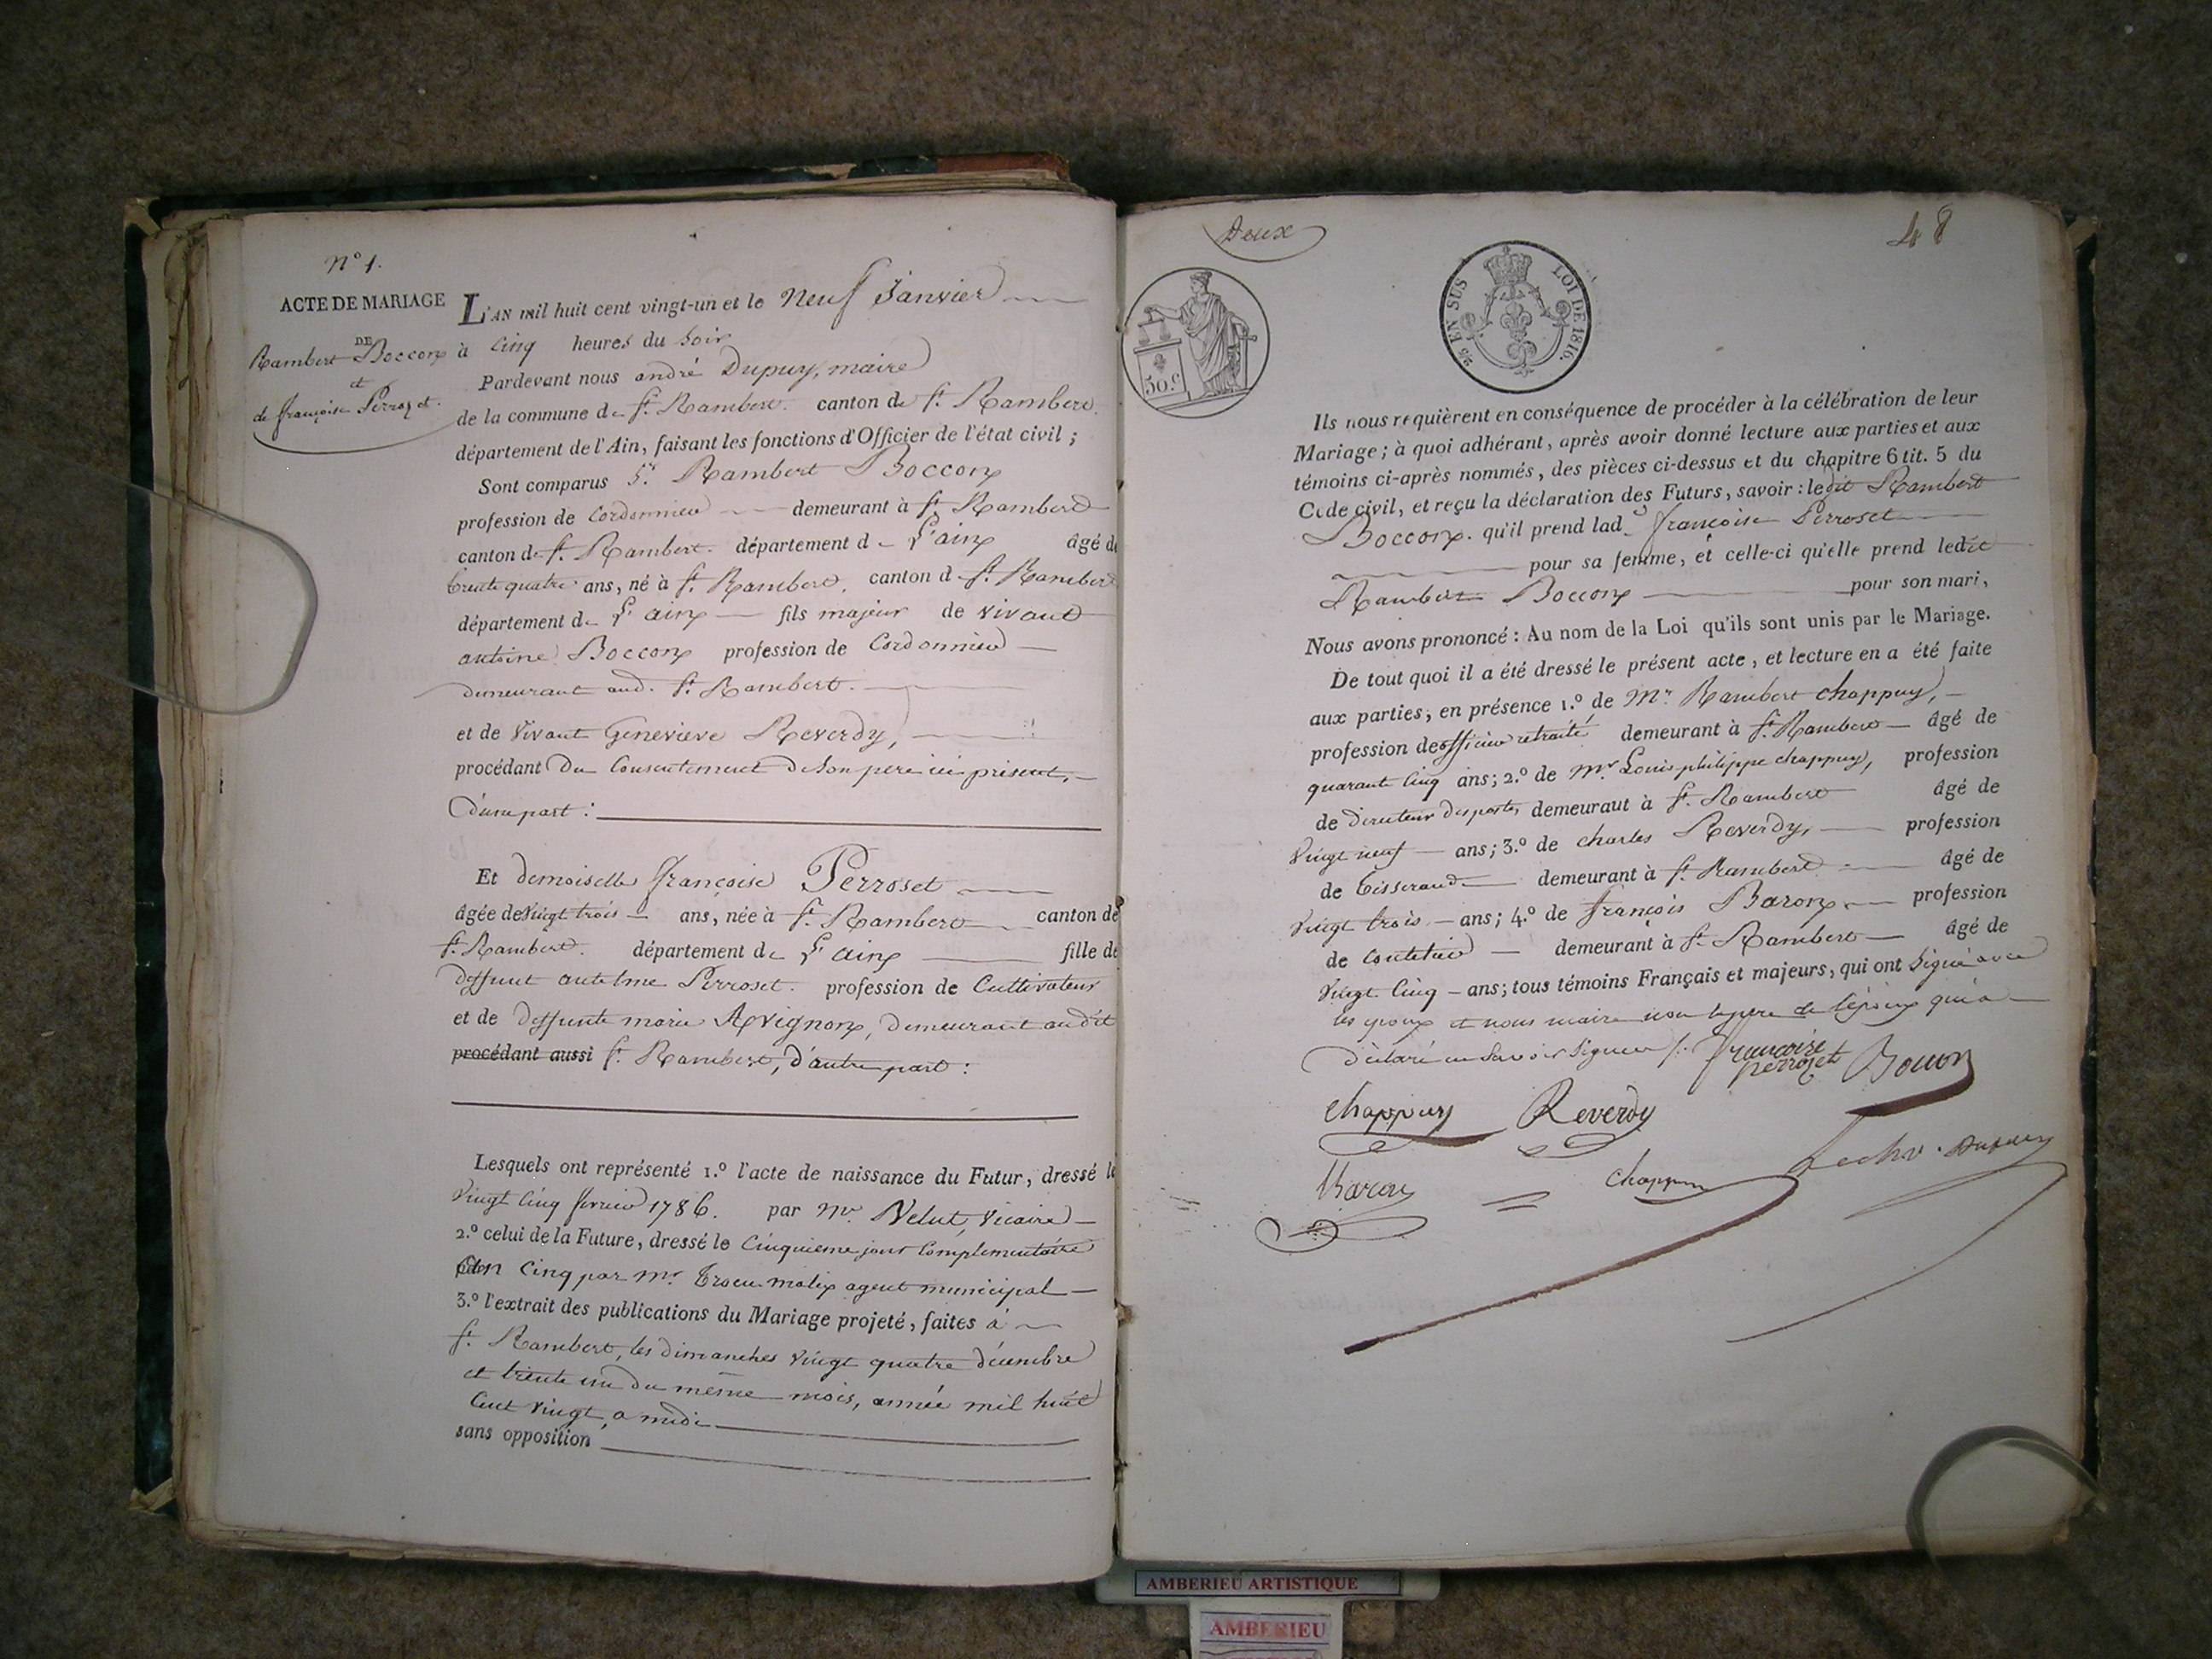 N° 1.
ACTE DE MARIAGE
DE
Rambert Boccon
et
de françoise Perrozet.
L'AN mil huit cent vingt-un et le Neuf Janvier
à cinq heures du Soir
Pardevant nous andré Dupuy, maire
de la commune de St. Rambert. canton de St. Rambert.
département de l'Ain, faisant les fonctions d'Officier de l'état civil ;
Sont comparus Sr. Rambert Boccon
profession de Cordonnier demeurant à St Rambert
canton de St. Rambert. département de L'ain âgé de
trente quatre ans, né à St. Rambert, canton d St. Rambert
département de L'ain fils majeur de vivant
antoine Boccon profession de Cordonnier
demeurant aud. St. Rambert.
et de Vivant Genevieve Reverdy,
procédant Du Consentement de son pere ici présent,
D'une part :
Et demoiselle françoise Perroset
âgée de vingt trois ans, née à St. Rambert canton de
St. Rambert. département de L'ain fille de
deffunt antelme Perroset. profession de Cultivateur
et de deffunte marie Avignon, demeurant audit
procédant aussi St. Rambert, d'autre part :
Lesquels ont représenté 1.° l'acte de naissance du Futur, dressé le
Vingt Cinq fevrier 1786. par Mr. Velut, Vicaire
2.° celui de la Future, dressé le Cinquieme jour Complementaire
an Cinq par Mr. Trocu malix agent municipal
3.° l'extrait des publications du Mariage projeté, faites à
St. Rambert, les dimanches Vingt quatre décembre
et trente un du même mois, année mil huit
Cent Vingt, a midi
sans opposition
Deux
48
50.c
25 EN SUS LOI DE 1816.
Ils nous requièrent en conséquence de procéder à la célébration de leur
Mariage ; à quoi adhérant, après avoir donné lecture aux parties et aux
témoins ci-après nommés, des pièces ci-dessus et du chapitre 6 tit. 5 du
Code civil, et reçu la déclaration des Futurs, savoir : ledit Rambert
Boccon. qu'il prend lad. françoise Perroset
pour sa femme, et celle-ci qu'elle prend ledit
Rambert Boccon pour son mari,
Nous avons prononcé : Au nom de la Loi qu'ils sont unis par le Mariage.
De tout quoi il a été dressé le présent acte, et lecture en a été faite
aux parties, en présence 1.° de Mr. Rambert chappuy,
profession de officier retraité demeurant à St. Rambert âgé de
quarante Cinq ans ; 2.° de Mr. Louis philippe chappuy, profession
de directeur des postes demeurant à St. Rambert âgé de
Vingt neuf ans ; 3.° de charles Reverdy, profession
de tisserand demeurant à St. Rambert âgé de
Vingt trois ans ; 4.° de françois Baron profession
de Coutelier demeurant à St. Rambert âgé de
Vingt Cinq ans ; tous témoins Français et majeurs, qui ont Signé avec
les epoux et nous maire non le pere de l'époux qui a
déclaré ne Savoir Signer /. françoise perrozet Bocon
Chappuy Reverdy
Baron Chappuy Dupuy
AMBERIEU ARTISTIQUE
AMBERIEU